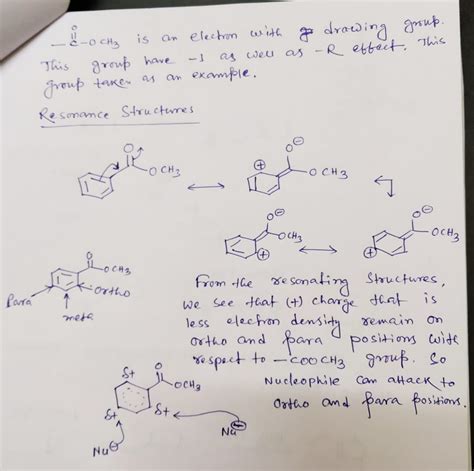 O
— C — OCH3 is an electron with drawing group.
This group have -I as well as -R effect. This
group taken as an example.
Resonance Structures
O
OCH3
O⊖
⊕
OCH3
O⊖
OCH3
⊕
O⊖
OCH3
⊕
O
OCH3
Ortho
Para
meta
From the resonating structures,
we see that (+) charge that is
less electron density remain on
ortho and para positions with
respect to -COOCH3 group. So
Nucleophile can attack to
Ortho and para positions.
δ+
O
OCH3
δ+
δ+
Nu⊖
Nu⊖